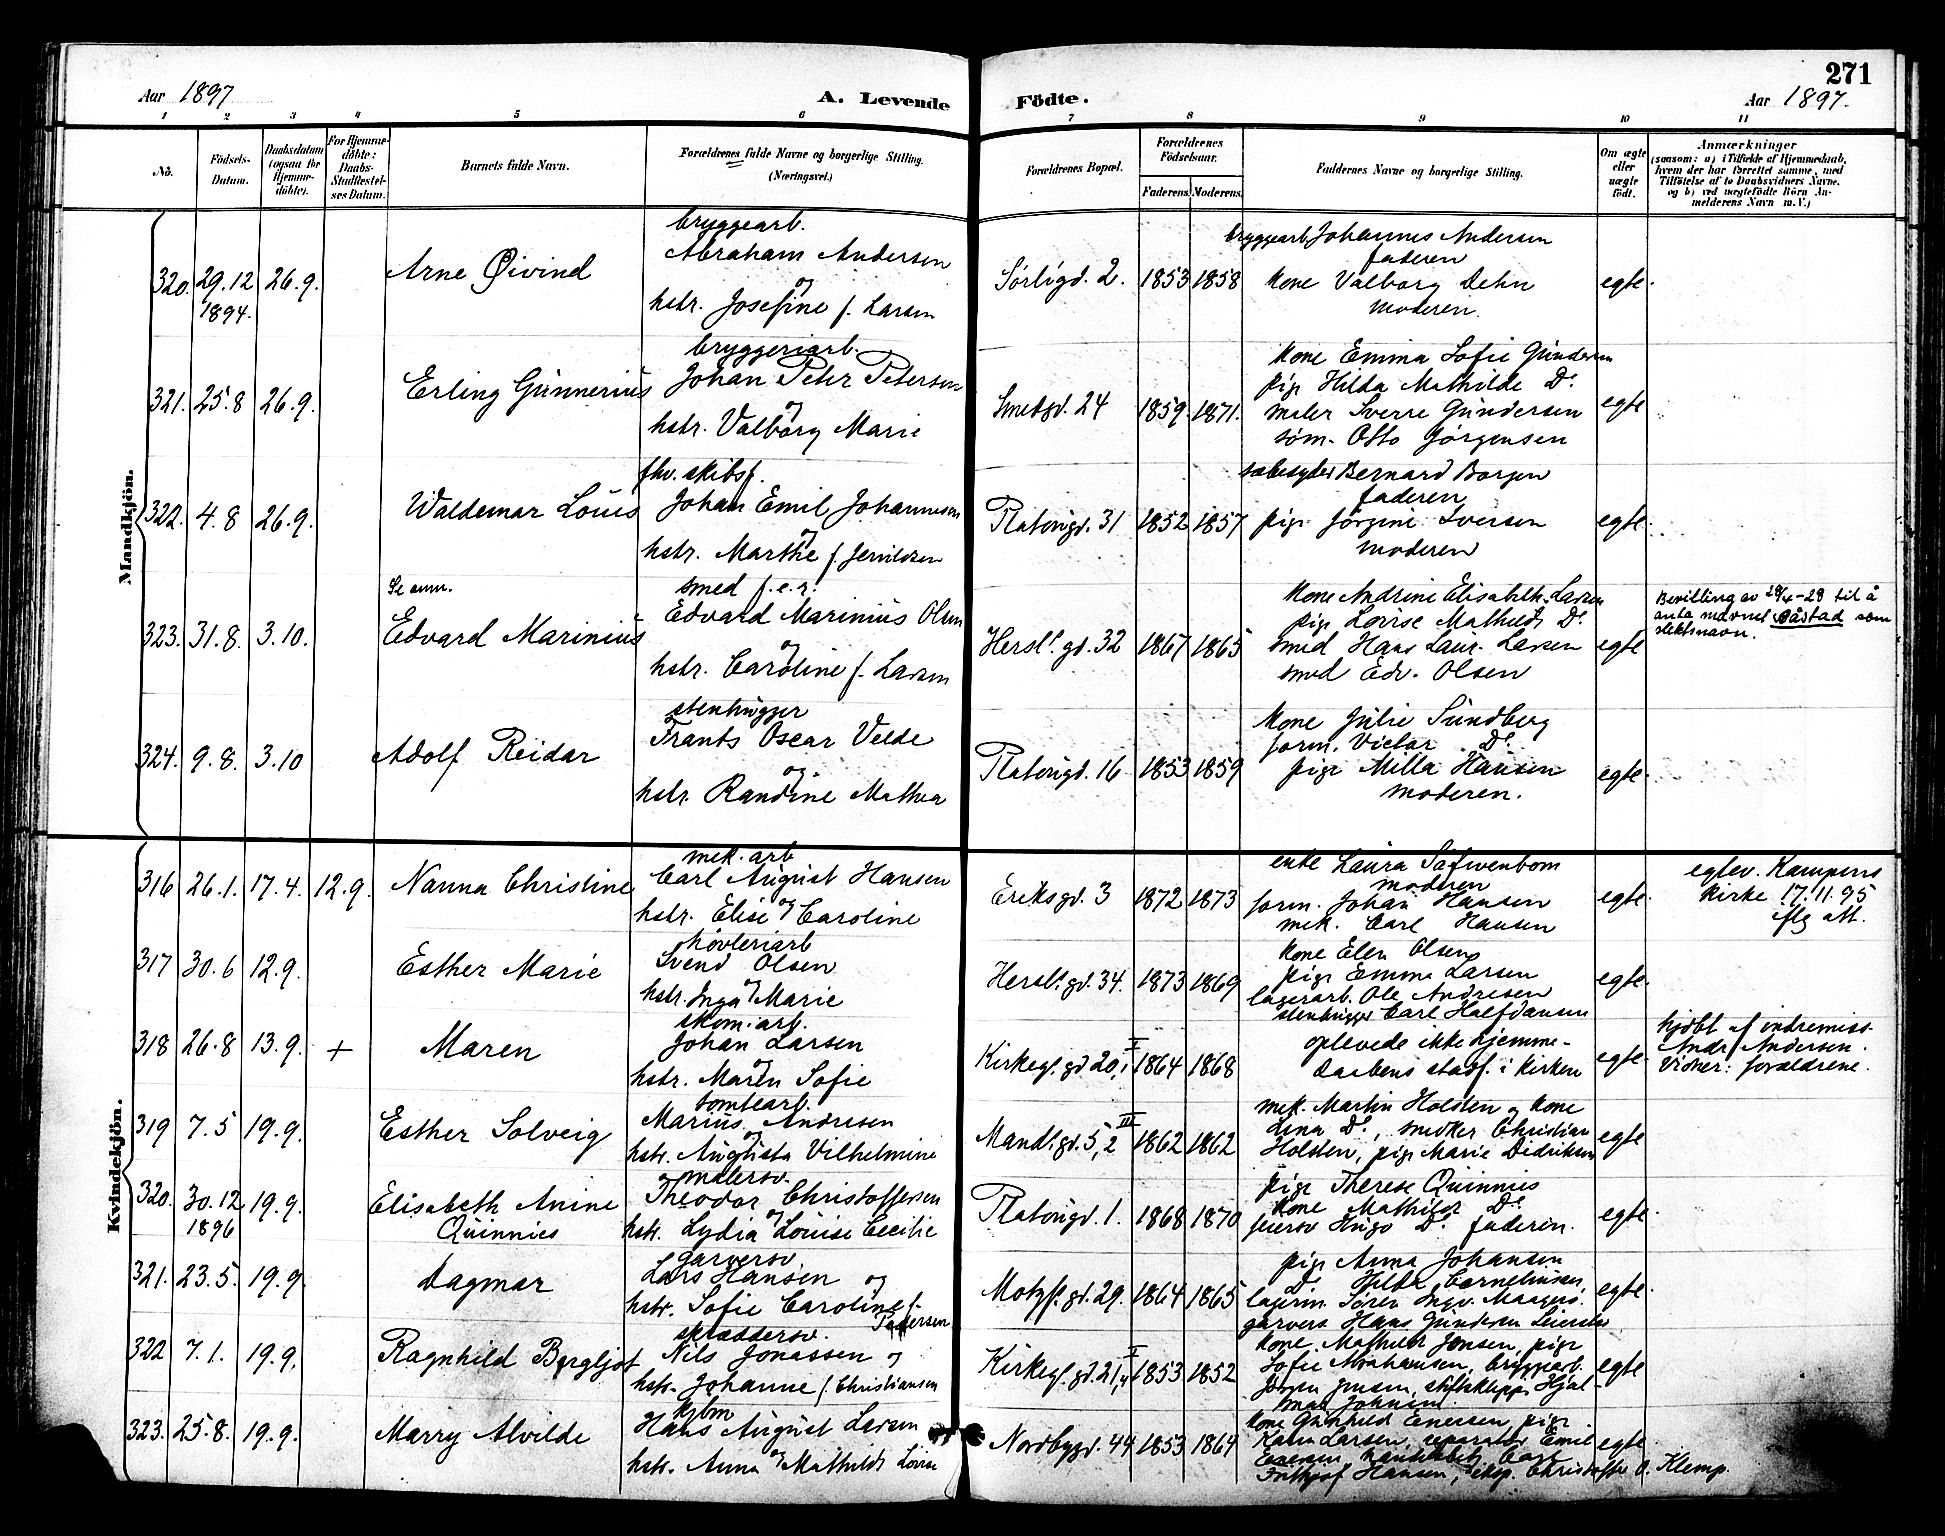 271
Aar 1897
A. Levende
Födte.
Aar 1897.
1 2 3 4 5 6 7 8 9 10 11
No.
Födsels-
Datum.
Daabsdatum
(ogsaa for
Hjemme-
döbte).
For Hjemme-
döbte:
Daabs-
Stadfestel-
ses Datum.
Barnets fulde Navn.
Forældrenes fulde Navne og borgerlige Stilling.
(Næringsvei.)
Forældrenes Bopæl.
Forældrenes
Födselsaar.
Faderens. Moderens.
Faddernes Navne og borgerlige Stilling.
Om ægte
eller
uægte
födt.
Anmærkninger
(saasom: a) i Tilfælde af Hjemmedaab,
hvem der har forrettet samme, med
Tilföielse af to Daabsvidners Navne,
og b) ved uægtefödte Börn An-
melderens Navn m. V.)
Mandkjön.
320. 29.12 1894. 26.9.
Arne Øivind
bryggearb.
Abraham Andersen
og
hstr. Josefine f. Larsen
Sørligd. 2. 1853 1858
bryggearb. Johannes Andersen
faderen
kone Valborg Dehn
moderen.
egte.
321. 25.8 26.9.
Erling Gunnerius
bryggeriarb.
Johan Peter Petersen
og
hstr. Valborg Marie
Smedgd. 24 1859. 1871.
kone Emma Sofie Gundersen
pige Hilda Mathilde Do.
maler Sverre Gundersen
søm. Otto Jørgensen
egte
322. 4.8 26.9.
Waldemar Louis
fhv. skibsf.
Johan Emil Johannesen
og
hstr. Marthe f.
Platougd. 31 1852 1857
Bernard Borgen
faderen
pige Jørgine Iversen
moderen
egte.
323. 31.8. 3.10.
Se anm.
Edvard Marinius
smed f.e.r.
Edvard Marinius Olsen
og
hstr. Caroline f. Larsen
Hersl. gd. 32 1867 1865
kone Andrine Elisabeth Larsen
pige Lovise Mathilde Do.
smed Hans Laur. Larsen
smed Edv. Olsen
egte
Bevilling av 28/4-29 til å
anta navnet Båstad som
slektsnavn.
324. 9.8. 3.10
Adolf Reidar
stenhugger
Frants Oscar Velde
og
hstr. Randine Mathea
Platougd. 16 1853 1859
kone Julie Sundberg
form. Victor Do.
pige Milla Hansen
moderen.
egte.
Kvindekjön.
316 26.1. 17.4. 12.9.
Nanna Christine
mek. arb
Carl August Hansen
og
hstr. Elise Caroline
Eriksgd. 3 1872 1873
enke Laura Säfvenbom
moderen
form. Johan Hansen
mek. Carl Hansen
egte.
egtev. Kampens
kirke 17.11.95
iflg att.
317 30.6 12.9.
Esther Marie
høvleriarb
Svend Olsen
og
hstr. Inga Marie
Hersl. gd. 34. 1873 1869
kone Elen Olsen
pige Emma Larsen
lagerarb. Ole Andresen
stenhugger Carl Halfdansen
egte.
318 26.8 13.9. +
Maren
skom. arb.
Johan Larsen
og
hstr. Maren Sofie
Kirkegl. gd 20, 1864 1868
oplevede ikke hjemme-
daabens stadf. i kirken
egte.
hjdbt af indremiss.
Andr. Andersen.
Vidner: forældrene.
319 7.5 19.9.
Esther Solveig
tomtearb.
Marius Andresen
og
hstr. Augusta Vilhelmine
Mandl. gd. 5, 2 III 1862 1862
mek. Martin Holsten og kone
Lina Do., snedker Christian
Holsten, pige Marie Didriksen
egte
320. 30.12 1896 19.9.
Elisabeth Anine
Quinnies
malersv.
Theodor Christoffersen
og
hstr. Lydia Louise Cecilie
Platougd. 1. 1868 1870
pige Therese Quinnies
kone Mathilde Do.
feiersv Hugo Do. faderen.
egte.
321. 23.5. 19.9.
Dagmar
garversv.
Lars Hansen og
hstr. Sofie Caroline f.
Pettersen
Motzf. gd. 29. 1864 1865
pige Anna Johansen
Do. Hilda Corneliussen
lagerm. Søren Ingv.
garvers Hans Gundersen
egte.
322 7.1. 19.9.
Ragnhild Bergljot
skræddersv.
Nils Jonassen og
hstr. Johanne f. Christiansen
Kirkegl. gd. 21, 1853 1852
kone Mathilde Jensen, pige
Sofie Abrahamsen, bryggearb.
Jørgen Jensen, Hjal-
mar Johnsen.
egte
323. 25.8. 19.9.
Marry Alvilde
kjbm
Hans August Larsen
og
hstr. Anna Mathilde Lovise
Nordbygd. 44 1853 1864
kone Gunhild Enersen, pige
Karen Larsen, Emil
Enersen,
Frithjof Hansen, eksp. Christoffer O. Klemp.
egte